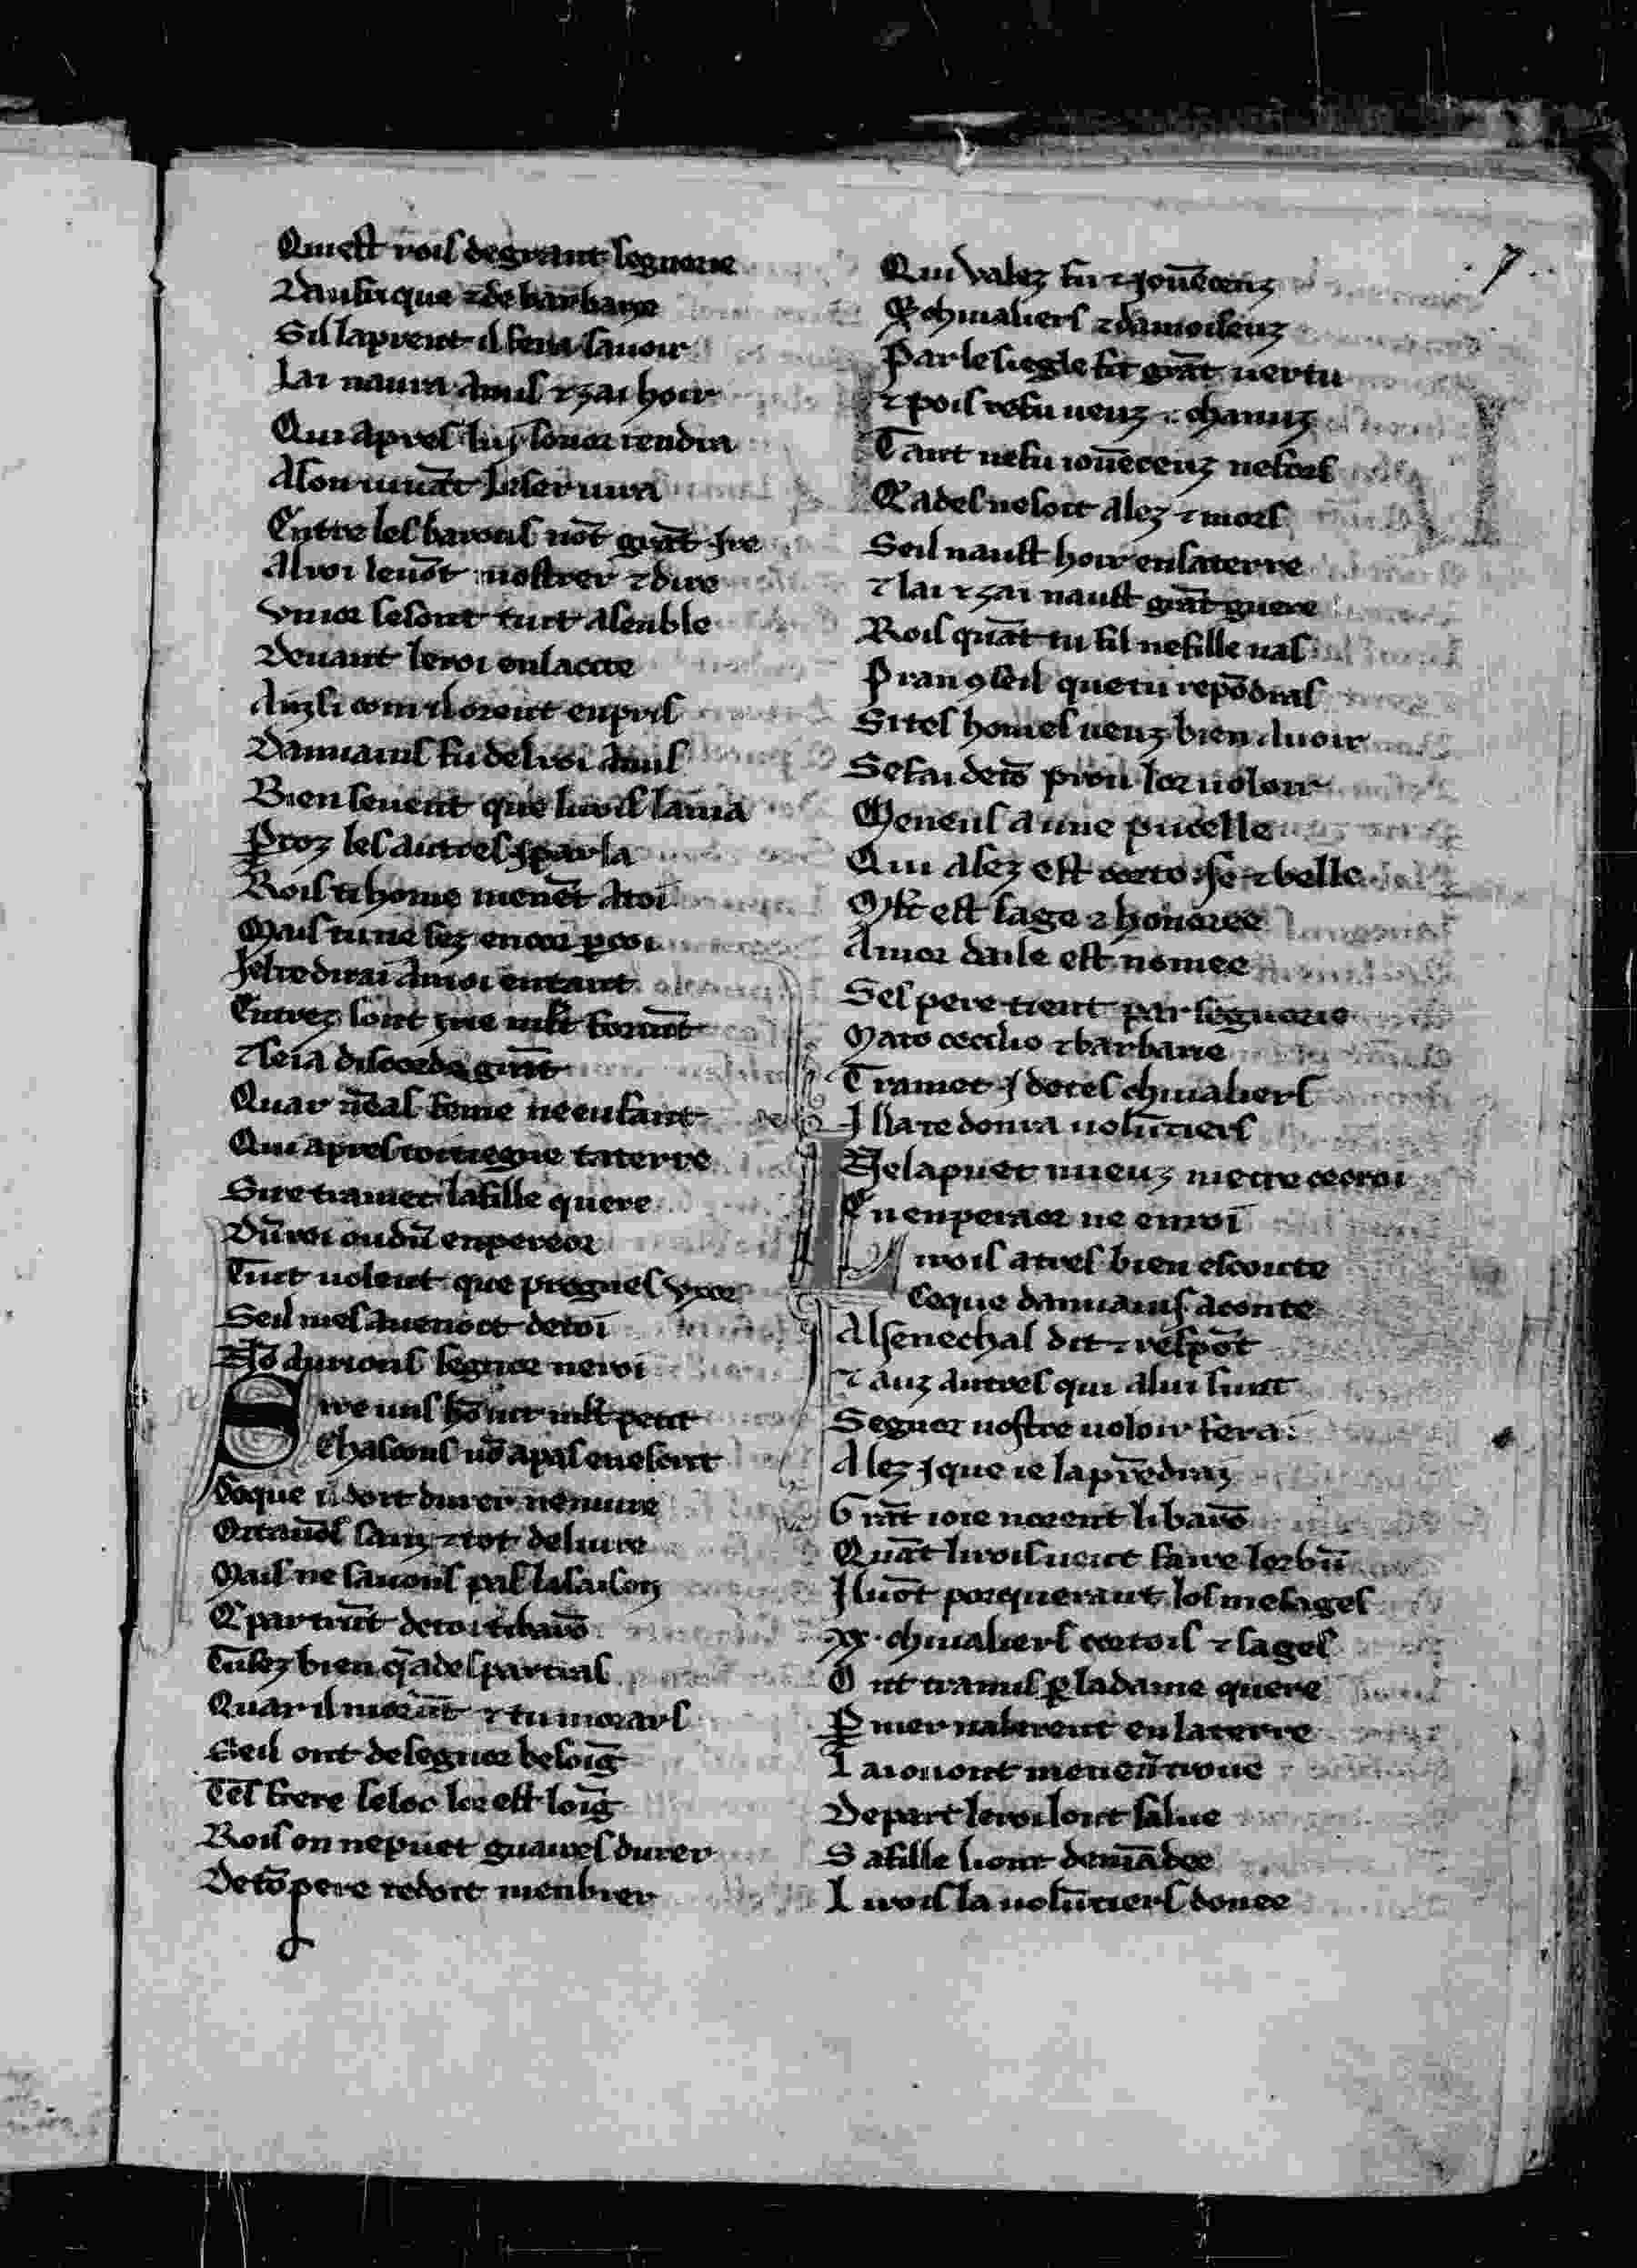 Quiest rois degrant segnorie
Daufrique ⁊ de barbarie
Sil laprent il fera sauoir
Iai naura amis ⁊ zai hoir
Qui apres luj sonor tendra
Ason uiuāt lisseruira
Entre les barons nōt grāt ire
Al roi lenōt mostrer ⁊ dire
Vnior sesont tuit asenble
Deuant leroi enlacite
Auzsi com il orent enpris
Danuains fu del roi amis
Bien seuent que lirois lama
Proz les autres j parla
Rois ti home menēt atoi
Mais tu ne sez encor p̱coi
Jeltedirai amoi entant
Entrez sont
⁊ seia discorde grāt
Quar nēas feme ne enfant
Qui apres toi tiegne taterre
Sire tramet lafille quere
Dūroi oudū enpereor
Tuit uolent que pregnes vxor
Seil mesauenoit detoi
Nō aurions segnor neroi
Sire uns hō uit mlt petit
Chascuns nō apas enesérit
Coque il doit durer neuiure
Ortauōs sanz ⁊ tot deliure
Mais ne sauons pas lasaison
Q̄ partirāt detoi ti barō
Tu sez bien q̄ades partiras
Quar il morāt ⁊ tu moraras
Seil ont de segnor besoiḡ
Tes frere seloc lor est loiḡ
Rois on nepuet guaires durer
Detō pere tedoit menbrer
Qui valez fu ⁊ jouēcenz
Q̄ chiualiers ⁊ damoisenz
Par le siegle fit grāt uertu
⁊ pois refu ueuz ⁊ chanuz
Tant nefu iouēcenz nefors
Q̄ades nesoit alez ⁊ mors
Seil naust hoir ensaterre
⁊ lai ⁊ zai naust grāt guere
Rois quāt tu fil nefille nas
Pran ꝯseil que tu repōdras
Si tes homes ueuz bien auoir
Sefai detō prou lor uoloir
Meneus a une pucelle
Qui asez est cortoise ⁊ belle
Mlt est sage ⁊ honoree
Amor daile est nomee
Ses pere tient par segnorie
Maro cecilio ⁊ barbarie
Tramet j detes chiualiers
Illate donra uolūtiers
Nelapuet mieuz metre ceoroi
En enperaor ne enroi
Lirois atres bien escoute
Coque danuains aconte
Al senechal dit ⁊ respōt
⁊ auz autres qui alui sunt
Segnor uostre uoloir fera:
Alez j que ie la prēdrai
Grāt ioie norent li barō
Quāt lirois uoit faire lor bū
Il uōt por querant los mesages
.xx. chiualiers cortois ⁊ sages
Ont tramis p̱ ladame quere
P̱ mer nalerent enlaterre
Depart leroi lont salue
Safille liont demādee
Lirois la uolūtiers donee
7